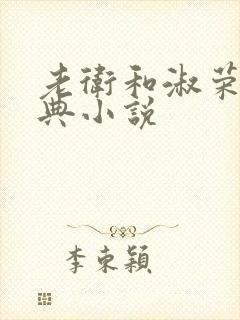 老衛和淑荣
典小説
李東穎